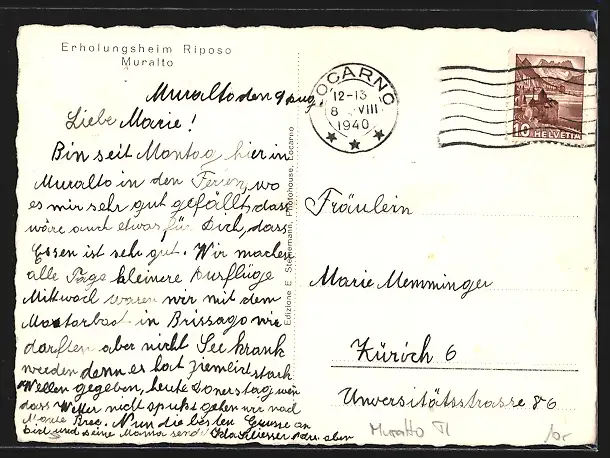 Erholungsheim Riposo
Muralto
Muralto den 9 aug.
Liebe Marie!
Bin seit Montag hier in
Muralto in den Ferien, wo
es mir sehr gut gefällt, dass
wäre auch etwas für Dich, das
Essen ist sehr gut. Wir machen
alle Tage kleinere Ausflüge
Mittwoch waren wir mit dem
in Brissago wir
dorften aber nicht See krank
werden denn es hat ziemlich stark
Wellen gegeben, heute Donerstag wen
dass Wetter nicht gehen wir nad
Monte Bre. Nun die besten Grüsse an
Dich und seine Mama
LOCARNO
12-13
8. VIII
1940
10 HELVETIA
Edizione E. Photohouse, Locarno
Fräulein
Marie Memminger
Zürich 6
Unversitätsstrasse 86
Muralto TI